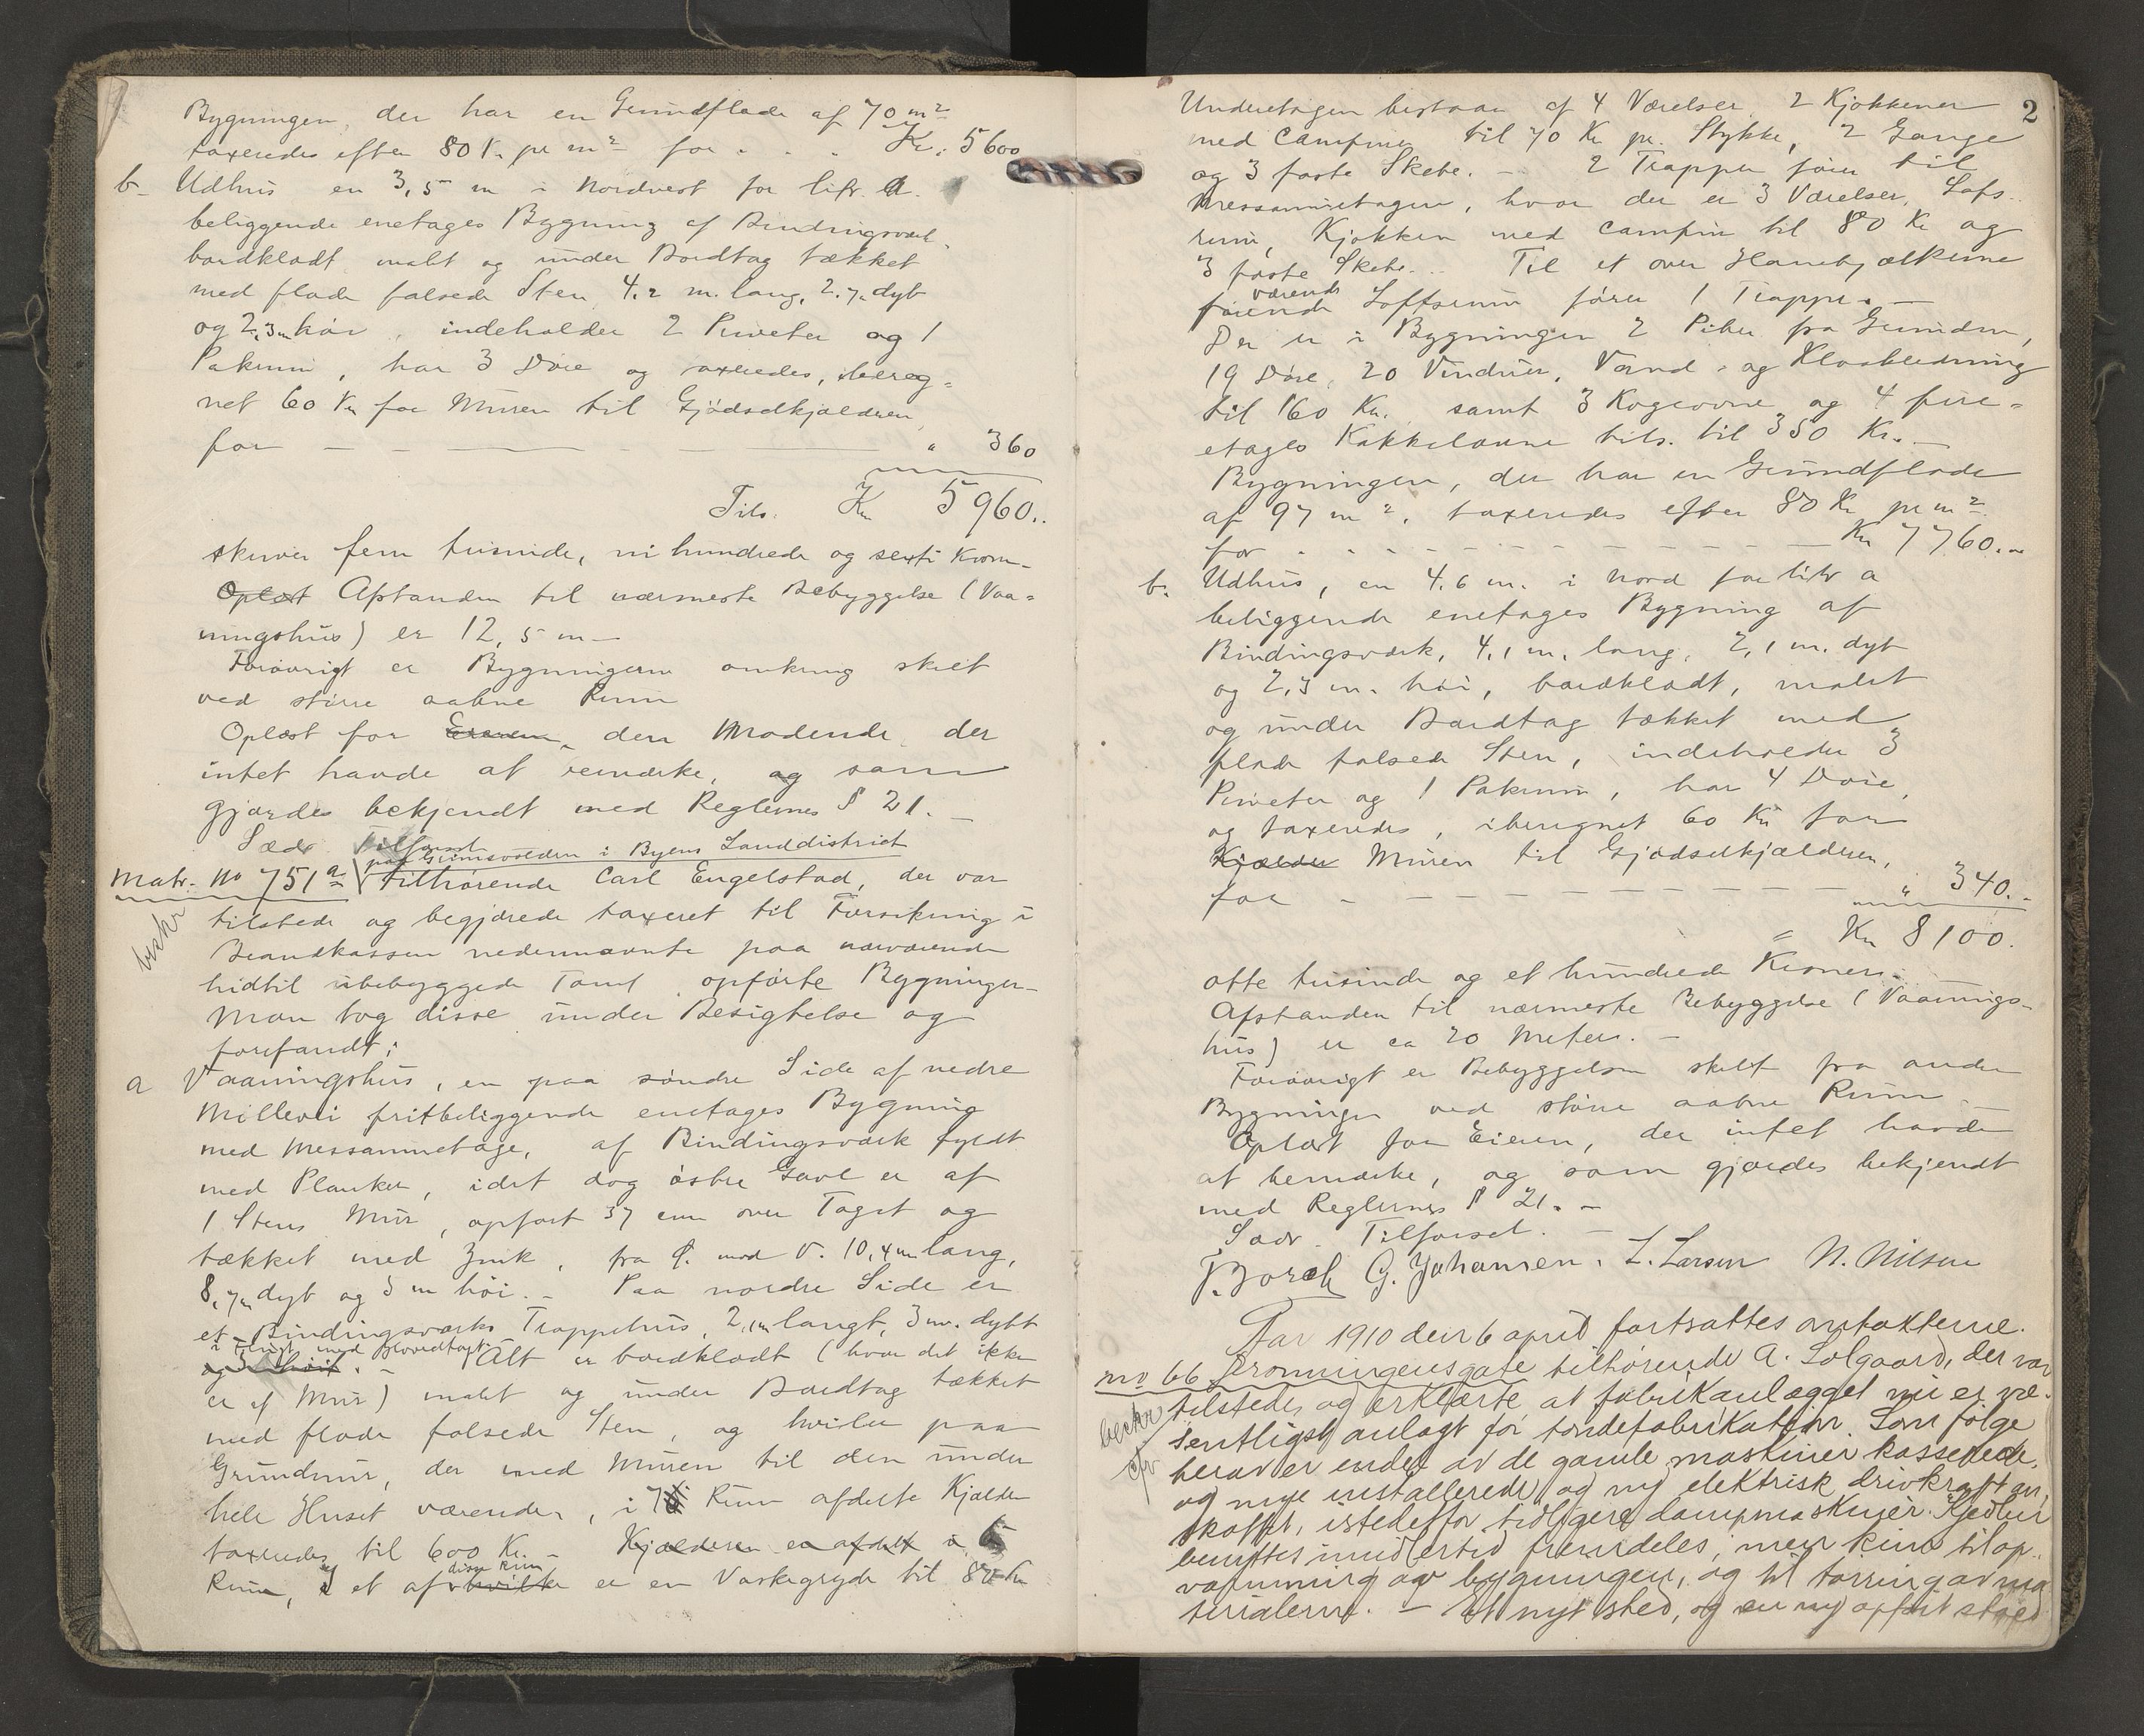 Bygningen, der har en Grundflade af 70 m²
taxeredes efter 80 Kr. pr m² for . . . Kr. 5600
b. Udhus en 3,5 m i Nordvest for litr. a.
beliggende enetages Bygning af Bindingsværk,
bordklædt malt og under Bordtag tækket
med flade falsede Sten, 4,2 m. lang, 2,7 m dyb
og 2,3 m høi, indeholder 2 Priveter og 1
Pakrum, har 3 Døre og taxeredes, ibereg=
net 60 Kr for Muren til Gjødselkjælderen,
for — — — " 360
Tils. Kr 5960..
skriver fem tusinde, ni hundrede og sexti Kron-
Oplæst Afstanden til nærmeste Bebyggelse (Vaa=
ningshus) er 12,5 m —
Forøvrigt er Bygningerne omkring skilt
ved større aabne Rum
Oplæst for Eieren den Mødende, der
intet havde at bemærke, og som
gjordes bekjendt med Reglernes § 21. —
Sædv. Tilførsel
paa Grimsvolden i Byens Landdistrict
Matr. No 751a tilhørende Carl Engelstad, der var
tilstede og begjærede taxeret til Forsikring i
beskr
Brandkassen nedennævnte paa nærværende
hidtil ubebyggede Tomt opførte Bygninger-
Man tog disse under Besigtelse og
forefandt:
a Vaaningshus, en paa søndre Side af nedre
Møllevei fritbeliggende enetages Bygning
med Messaninetage, af Bindingsværk fyldt
med Planker, idet dog østre Gavl er af
1 Stens Mur, opført 37 cm over Taget og
tækket med Zink, fra Ø. mod V. 10,4 m lang,
8,7 m dyb og 5 m høi. - Paa nordre Side er
et Bindingsværks Trappehus, 2,1 m langt, 3 m. dybt
og høit. - Alt er bordklædt (hvor det ikke
er af Mur) malt og under Bordtag tækket
med flade falsede Sten, og hviler paa
Grundmur, der med Muren til den under
hele Huset værende, i 7 Rum afdelte Kjælder
taxeredes til 600 Kr. - Kjælderen er afdelt i 6
Rum, I et af disse Rum er en Vaskegryde til 80 Kr
2
Underetagen bestaar af 4 Værelser 2 Kjøkkener
med Campiner til 70 Kr pr. Stykke, 2 Gange
og 3 faste Skabe. - 2 Trapper fører til
Messaninetagen, hvor der er 3 Værelser, Lofts-
rum, Kjøkken med Campin til 80 Kr og
3 faste Skabe... Til et over Hanebjælkerne
værende
førende Loftsrum fører 1 Trappe. —
Der er i Bygningen 2 Piber fra Grunden,
19 Døre, 20 Vinduer, Vand- og Kloakledning
til 160 Kr. samt 3 Kogeovne og 4 fire=
etages Kakkelovne tils. til 350 Kr. —
Bygningen, der har en Grundflade
af 97 m², taxeredes efter 80 Kr pr m²
for - - - - Kr 7760..
b. Udhus, en 4,6 m. i Nord for litr a
beliggende enetages Bygning af
Bindingsværk, 4,1 m. lang, 2,1 m. dyb
og 2,3 m. høi, bordklædt, malet
og under Bordtag tækket med
flade falsede Sten, indeholder 3
Priveter og 1 Pakrum, har 4 Døre,
og taxeredes, iberegnet 60 Kr for
Kjælder Muren til Gjødselkjælderen,
for - - - - " 340..
= Kr 8100.
otte tusinde og et hundrede Kroner.
Afstanden til nærmeste Bebyggelse (Vaanings-
hus) er ca 20 Meter. —
Forøvrigt er Bebyggelsen skilt fra andre
Bygninger ved større aabne Rum —
Oplæst for Eieren, der intet havde
at bemærke, og som gjordes bekjendt
med Reglernes § 21. -
Sædv. Tilførsel. —
F. Borch G. Johansen. L. Larsen N. Nilsen
Aar 1910 den 6 april fortsattes omtaxterne.
No 66 Dronningensgate tilhørende A. Solgaard, der var
tilstede og erklærte at fabrikanlægget nu er væ-
beskr
sentligst anlagt for tøndefabrikation. Som følge
herav er endel av de gamle maskiner kasserede,
og nye installerede og ny elektrisk drivkraft an-
skaffet, istedetfor tidligere dampmaskiner. Kjedlen
benyttes imidlertid fremdeles, men kun til op-
varmning av bygningen, og til tørring av ma
terialerne. — Et nyt sted, og en ny opført